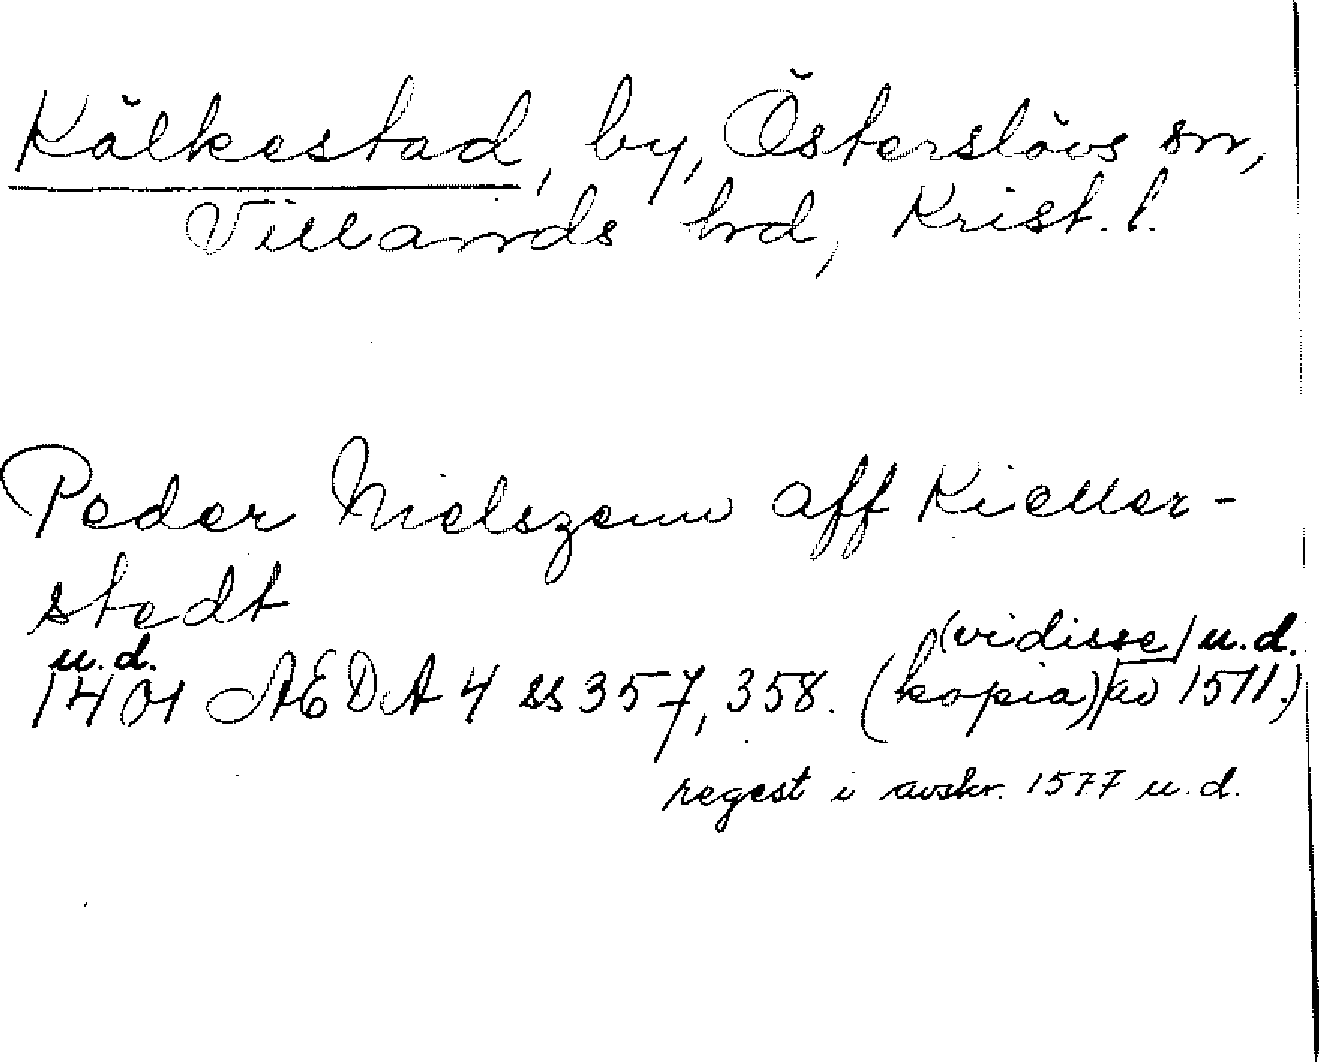 Kälkestad, by, Österslövs sn,
Villands hrd, Krist. l.
Peder Nielszenn aff Kieller-
stedt
(vidisse) u.d.
u.d.
1401 AEDA 4 ss 357, 358. (kopia) av 1511.)
regest i avskr. 1577 u.d.